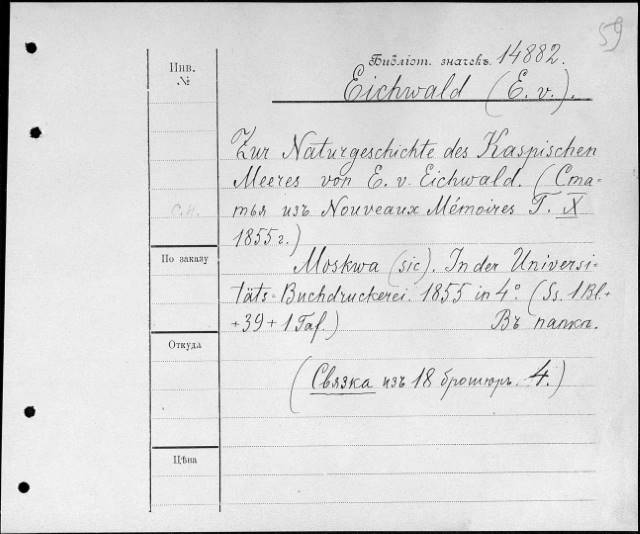 59
Инв.
№
с.н.
По заказу
Откуда
Цѣна
Библіот. значекъ 14882.
Eichwald (E. v.).
Zur Naturgeschichte des Kaspischen
Meeres von E. v. Eichwald. (Ста=
тья изъ Nouveaux Mémoires T. X
1855 г.)
Moskwa (sic). In der Universi=
täts=Buchdruckerei. 1855 in 4º. (Ss. 1 Bl.+
+39+1 Taf.) Въ папкѣ.
(Связка изъ 18 брошюръ. 4.)